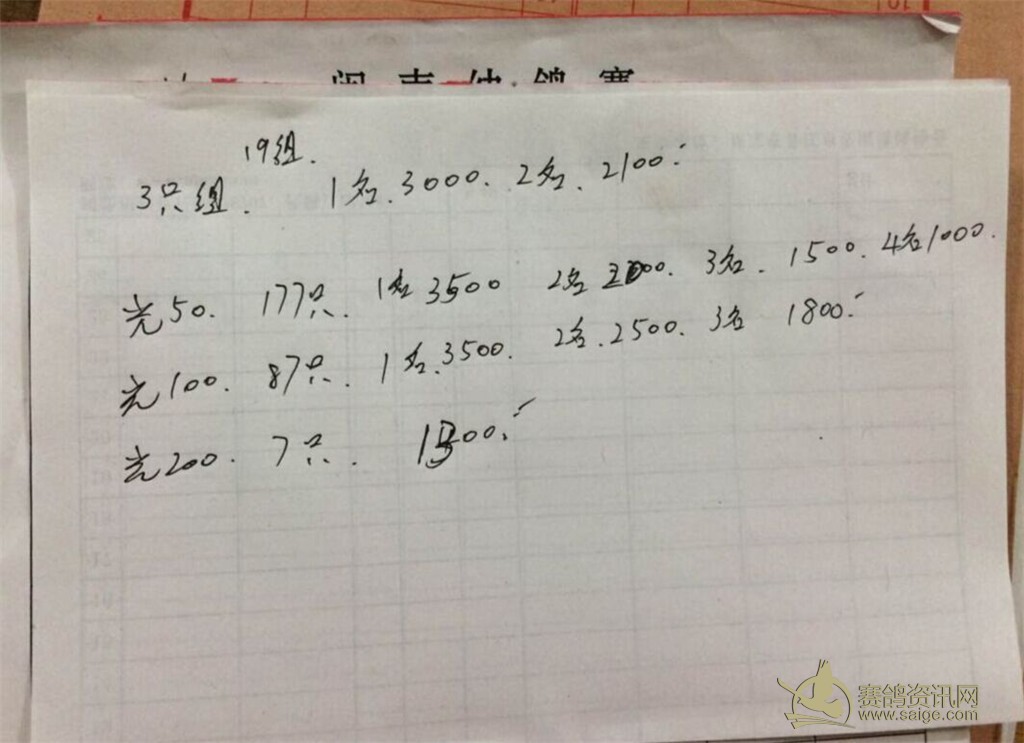 赛
19组.
3只组. 1名.3000. 2名.2100.
光50. 177只. 1名3500 2名2000. 3名. 1500. 4名1000.
光100. 87只. 1名.3500. 2名.2500. 3名 1800.
光200. 7只.
赛鸽资讯网
www.saige.com